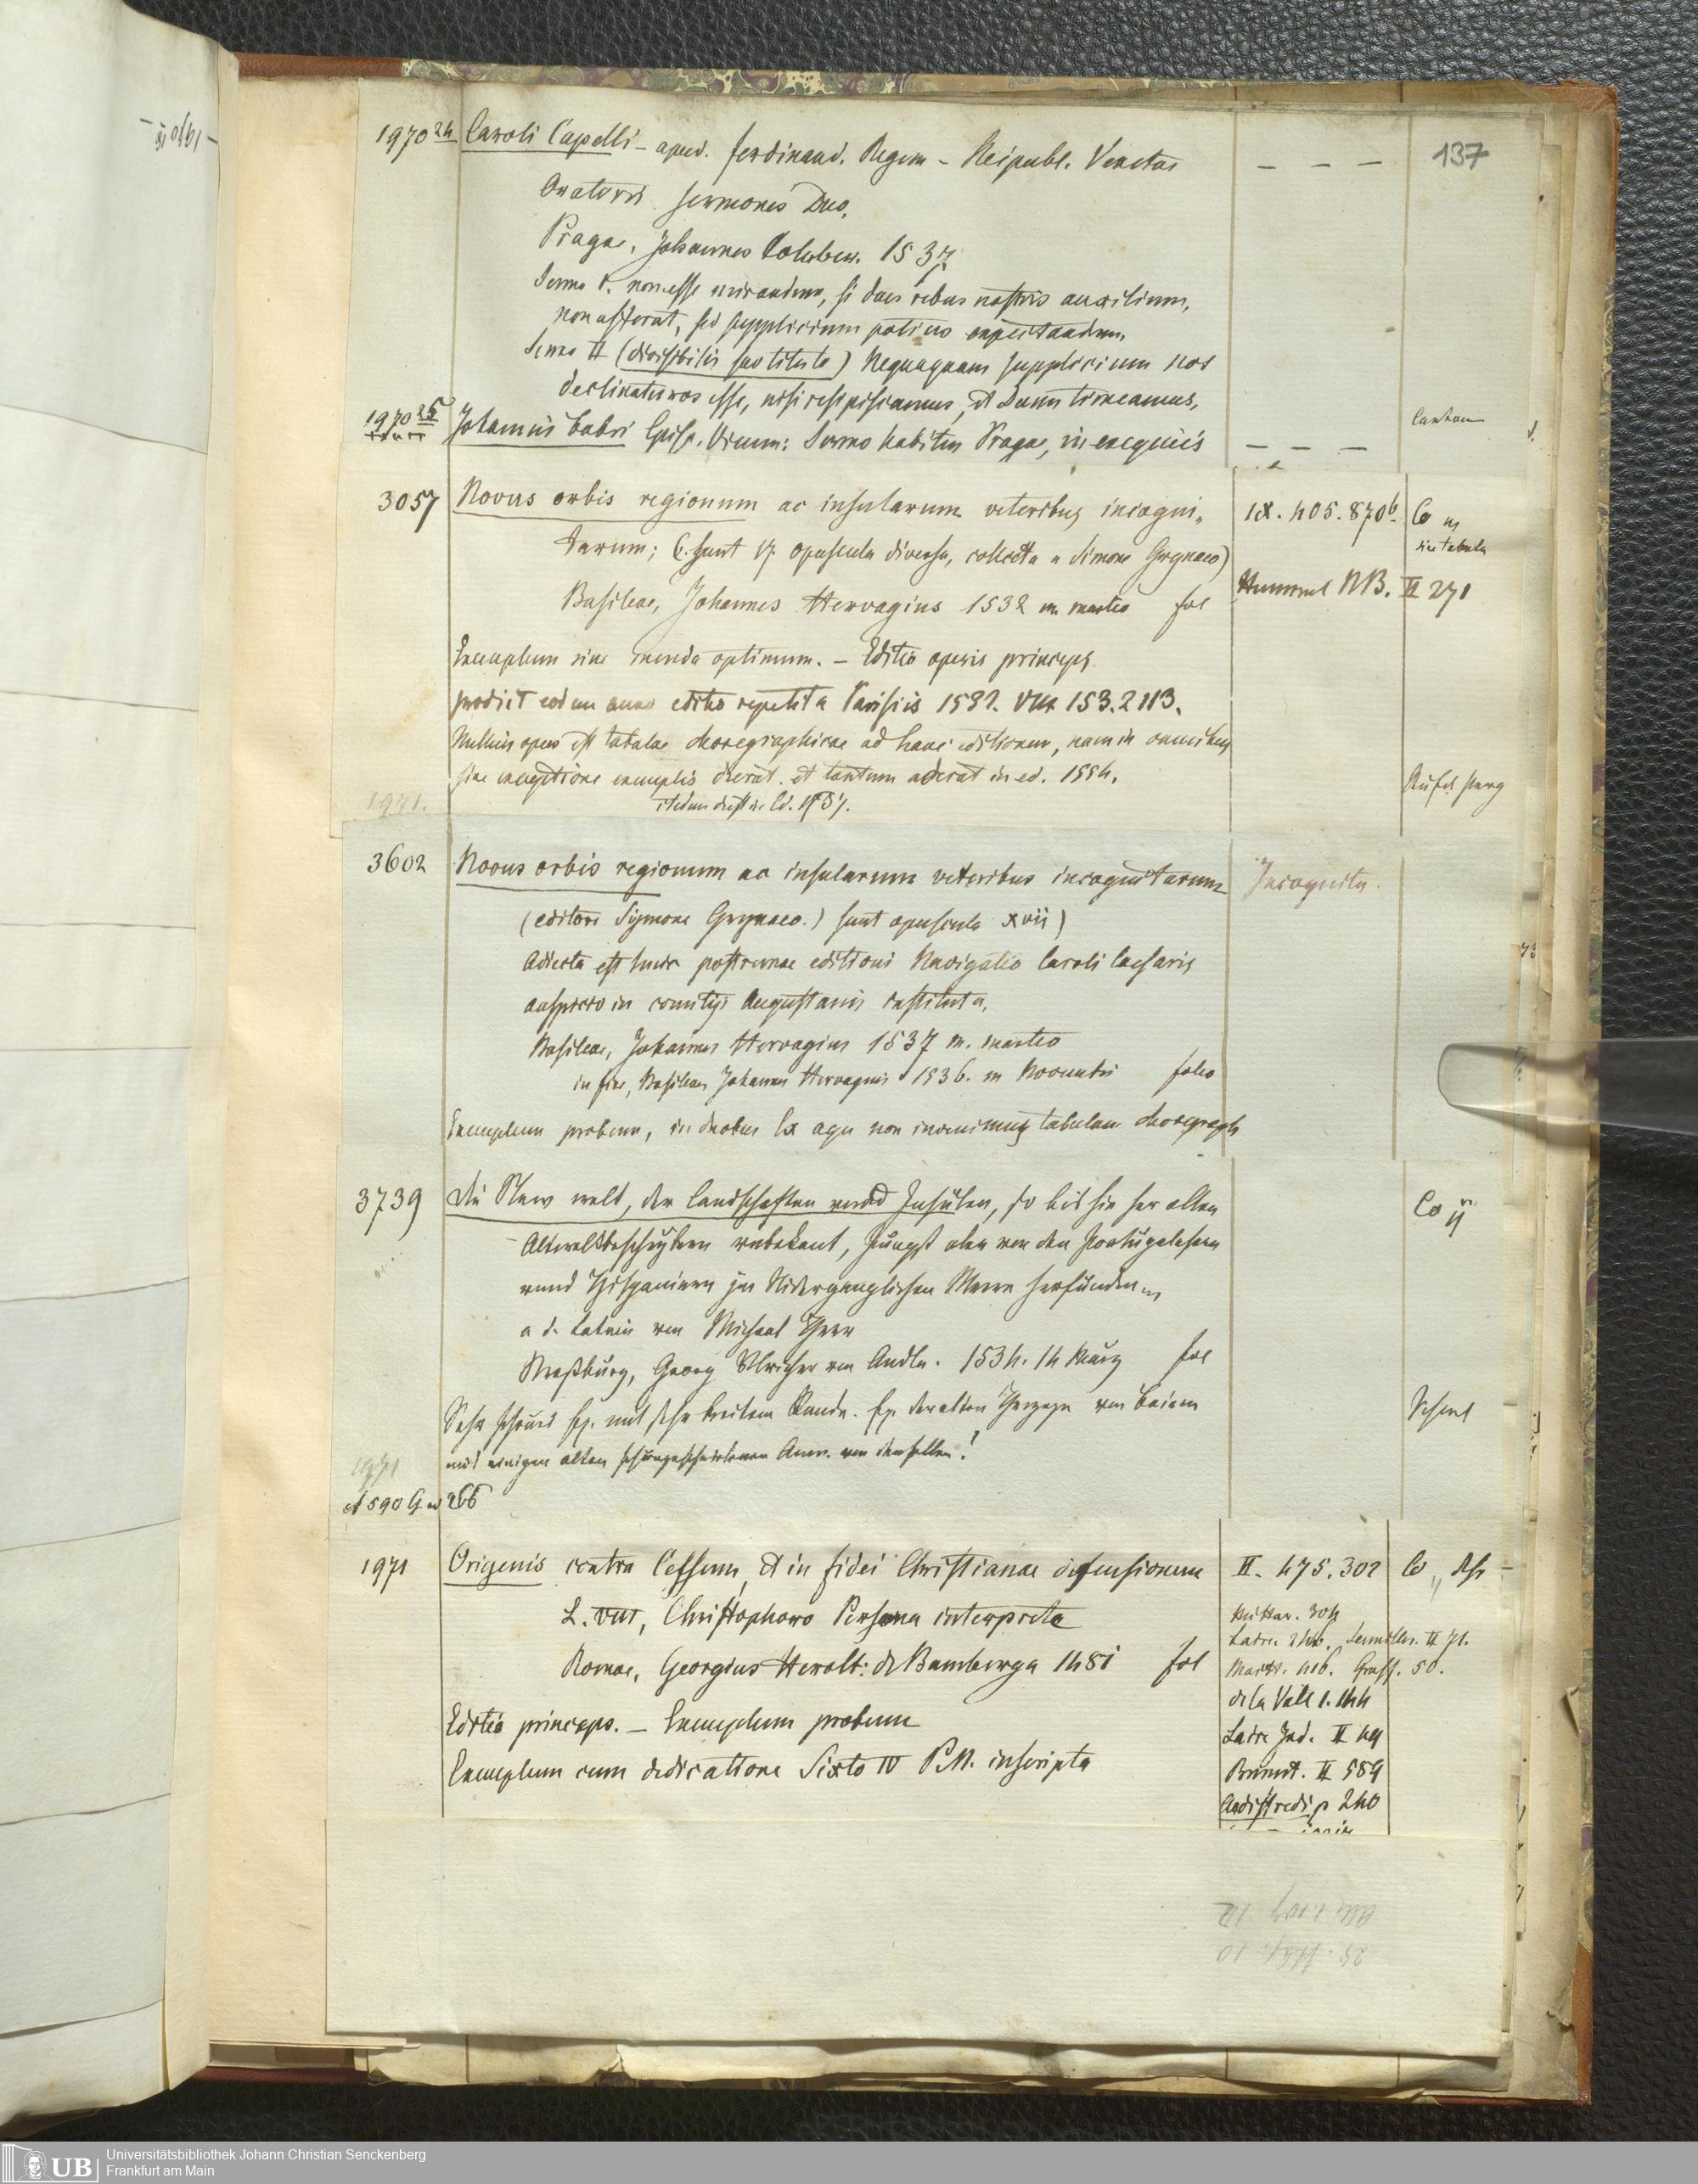 137
1970 24 Caroli Capelli – apud. Ferdinand. Regem – Reipubl. Venetae – – –
Oratoris Sermones Duo,
Pragae, Johannes Coluber. 1537
Sermo I. non esse mirandum, si deus rebus nostris auxilium,
non afferat, sed supplicium potius expectandum.
Sermo II (divisibilis suo titulo) Nequaquam supplicium nos
declinaturos esse, nisi resipiscamus, et Deum timeamus,
1970 25 Johannis Fabri Episc. Vienn: Sermo habitus Pragae, in exequiis – – –
3057 Novus orbis regionum ac insularum veteribus incogni- IX. 405. 870b. Co
tarum; (sunt 17 opuscula diversa, collecta a Simone Grynaeo) sine tabula
Basileae, Johannes Hervagius 1532 m. martio fol Hummel NB. II 271
Exemplum sine menda optimum. – Editio operis princeps
prodiit eodem anno editio repetita Parisiis 1532. VIII 153. 2113.
Nullius opus est tabulae chorographicae ad hanc editionem, nam in omnibus
sine exceptione exemplis deerat. et tantum aderat in ed. 1554.
1971. itidem deest in Ed. 1537.
3602 Novus orbis regionum ac insularum veteribus incognitarum Incognita.
(editore Symone Grynaeo.) sunt opuscula xvii)
Adiecta est huic postremae editioni Navigatio Caroli Caesaris
auspicio in comitijs Augustanis instituta,
Basileae, Johannes Hervagius 1537 m. martio
in fine, Basileae Johannes Hervagius 1536. m Novembri folio
Exemplum probum, in duobus Ex aequ non invenimus tabulam chorograph
3739 Die New welt, der landschaften vnnd Insulen, so bis hie her allen Co
Altweltbeschrybern vnbekant, Jungst aber von den Portugalesern
vnnd Hispaniern jm Nidergenglichen Meere herfunden
a d. Latein von Michael Herr
Straßburg, Georg Ulricher von Andla. 1534. 14 März fol
Sehr schönes Ex. mit sehr breitem Rande. Ex. der alten Herzoge von Baiern
mit einigen alten Anm. von denselben!
1971
1971 Origenis contra Celsum, et in fidei Christianae defensionem II. 475. 302 Co
L. VIII, Christophoro Persona interprete
Romae, Georgius Herolt: de Bamberga 1481 fol
Editio princeps. – Exemplum probum
Exemplum cum dedicatione Sixto IV P.M. inscripta
Maittar. 304
de la Vall 1. 144
Laire Ind. II 49
Brunet. II 589
Audiffredi p 240
UB Universitätsbibliothek Johann Christian Senckenberg
Frankfurt am Main